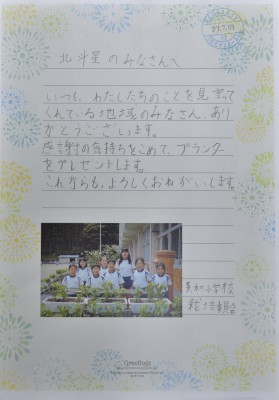 北斗星のみなさんへ
いつも、わたしたちのことを見守って
くれている地域のみなさん、あり
がとうございます。
感謝の気持ちをこめて、プランター
をプレゼントします。
これからも、よろしくおねがいします。
美和小学校
栽培委員会
Greetings